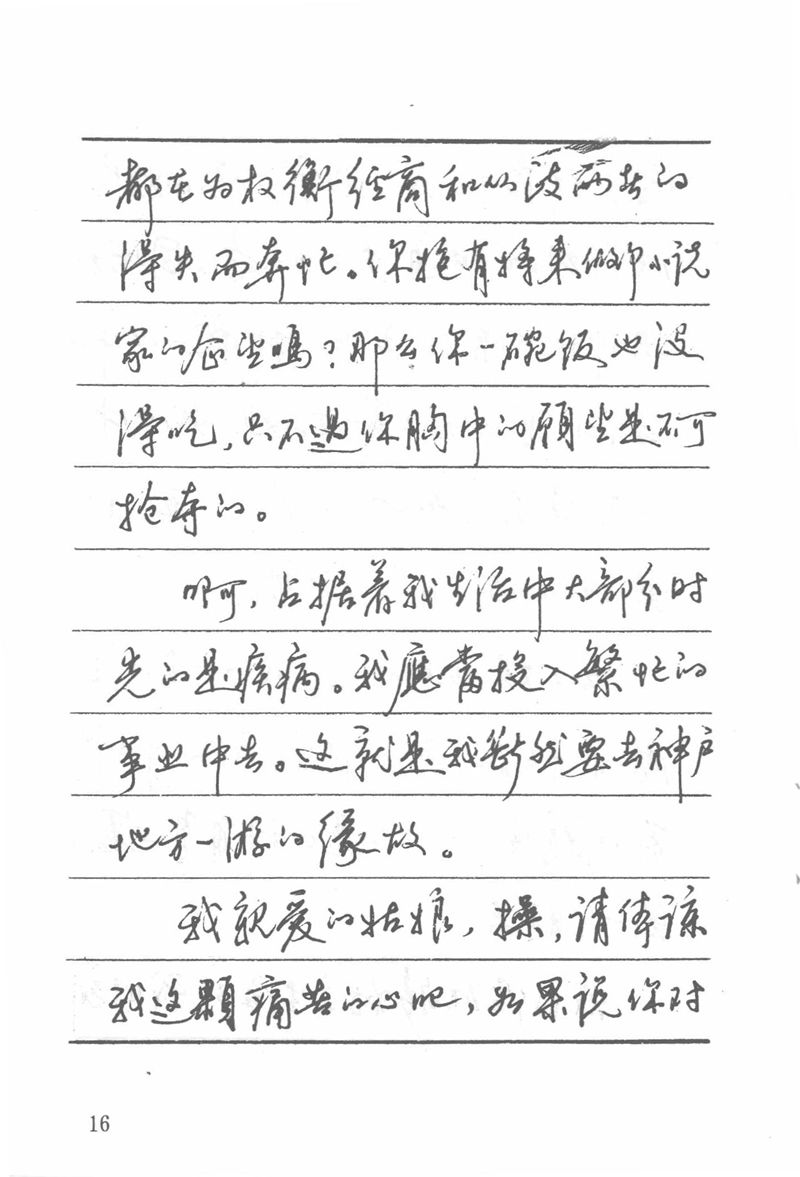 都在为权衡经商和从政两者的
得失而奔忙。你抱有将来做个小说
家的企望吗？那么你一碗饭也没
得吃，只不过你胸中的願望是不可
抢夺的。
啊，占据着我生活中大部分时
光的是疾病。我應當投入繁忙的
事业中去。这就是我断然要去神户
地方一游的缘故。
我親爱的姑娘，操，请体谅
我这颗痛苦的心吧，如果说你对
16